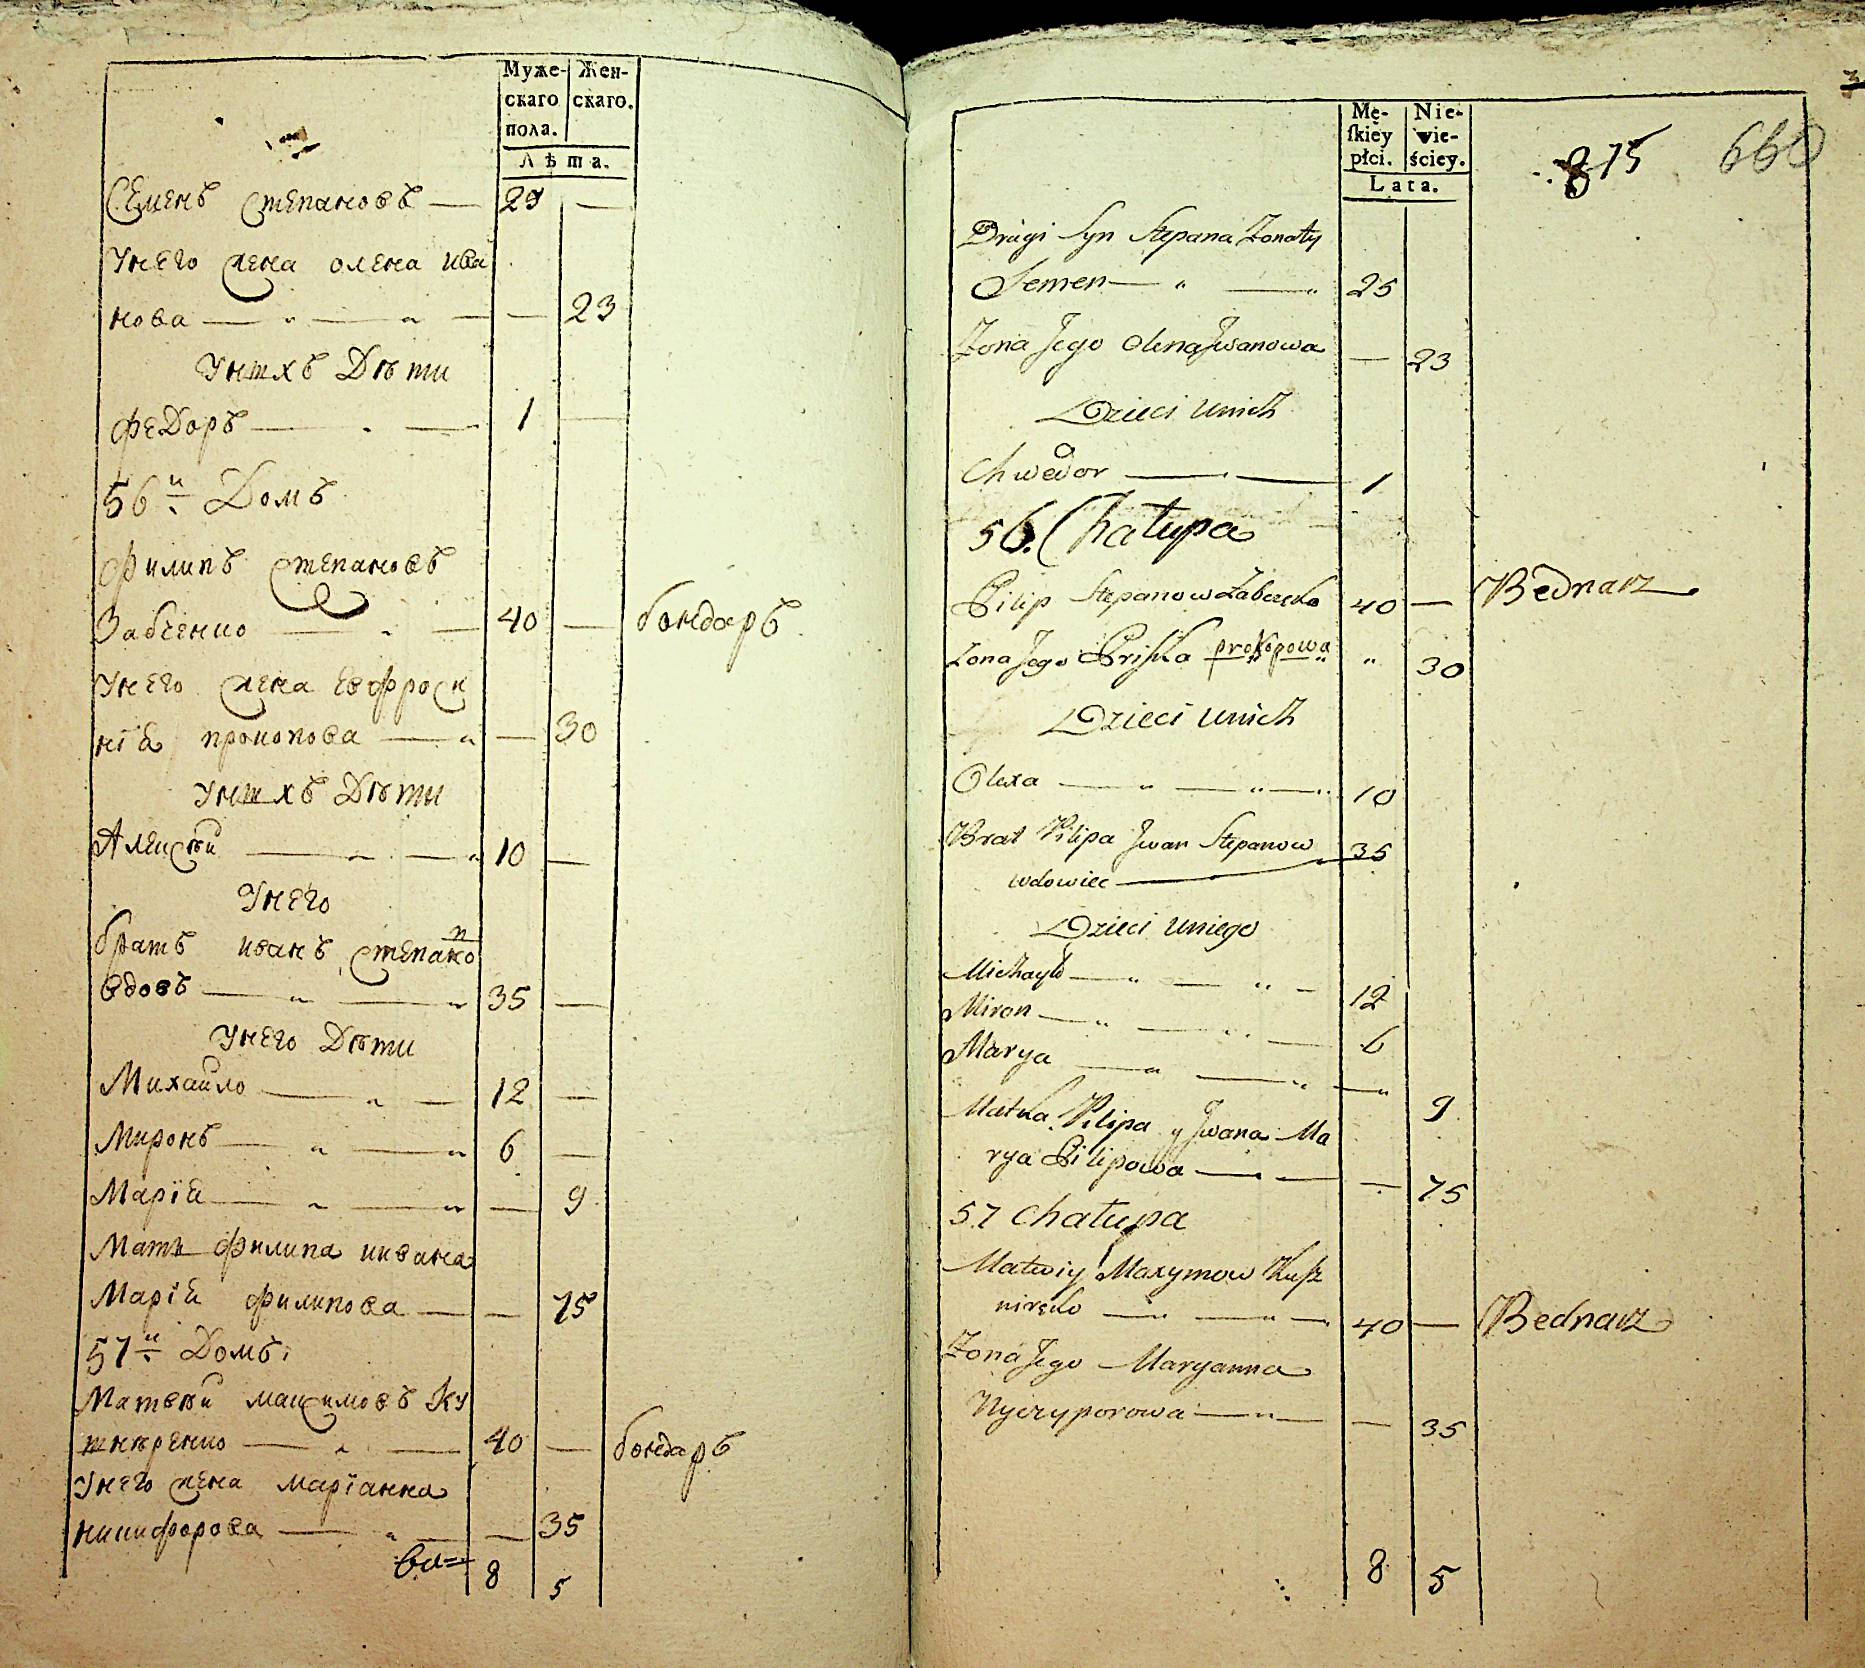 Муже- Жен-
скаго скаго.
пола.
Лѣта.
Семенъ Степановъ — 29 —
Унего жена олена ива
нова — „ — „ — — 23
Унихъ Дѣти
федоръ — . — 1 —
56й Домъ
филипъ Степановъ
Забѣенко — . — 40 — бондаръ
Унего жена Евфроси
нїя прокопова — „ — 30
Унихъ Дѣти
Алексѣй — „ — „ 10 —
Унего
братъ иванъ Степано
вдовъ — „ — „ 35 —
Унего Дѣти
Михайло — „ — 12 —
Миронъ — „ — „ 6 —
Марїя — „ — „ — 9
Мать филипа ивана
Марїя филипова — — 75
57й Домъ.
Матвѣй максимовъ Ку
шнѣренко — „ — 40 — бондаръ
Унего жена марїанна
никифорова — „ — — 35
8 5
Mę- Nie-
skiéy wie-
płci. ściey.
Lata.
875 660
Drugi Syn Stepana Zonaty
Semen — „ — „ 25
Zona Jego Olena Jwanowa — 23
Dzieci unich
Chwedor — . — 1
56. Chałupa
Pilip Stepanow Zabeenko 40 — Bednarz
Zona Jego Priska prokopowa „ 30
Dzieci unich
Olexa — „ — „ — „ 10
Brat Pilipa Jwan Stepanow 35
wdowiec —
Dzieci uniego
Michayło — „ — „ — 12
Miron — „ — „ — 6
Marya — „ — „ — „ 9
Matka Pilipa y Jwana Ma
rya Pilipowa — „ — — 75
57 Chałupa
Matwiy Maxymow Kusz
nirenko — „ — „ — 40 — Bednarz
Zona Jego Maryanna
Nyczyporowa — „ — — 35
8 5